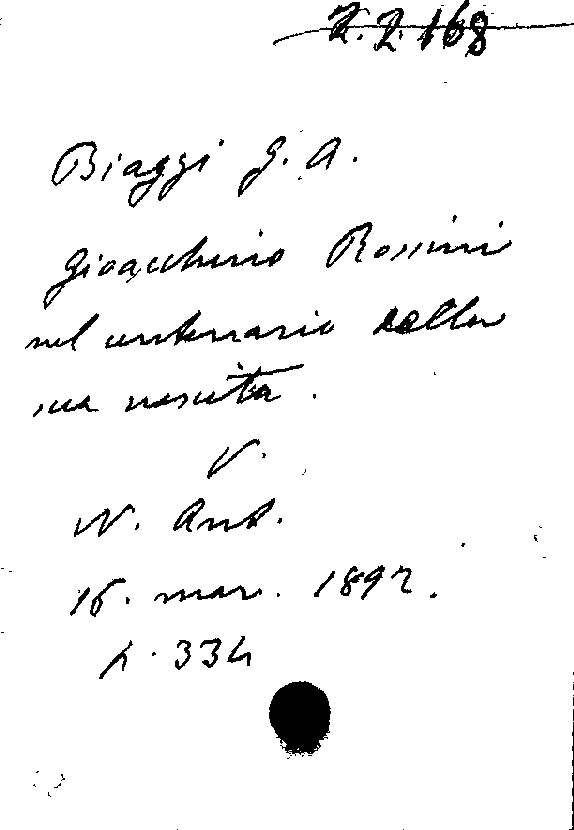 2.2.168
Biaggi G. A.
Gioacchino Rossini
nel centenario della
sua nascita.
V.
N. Ant.
16. mar. 1892.
p. 334